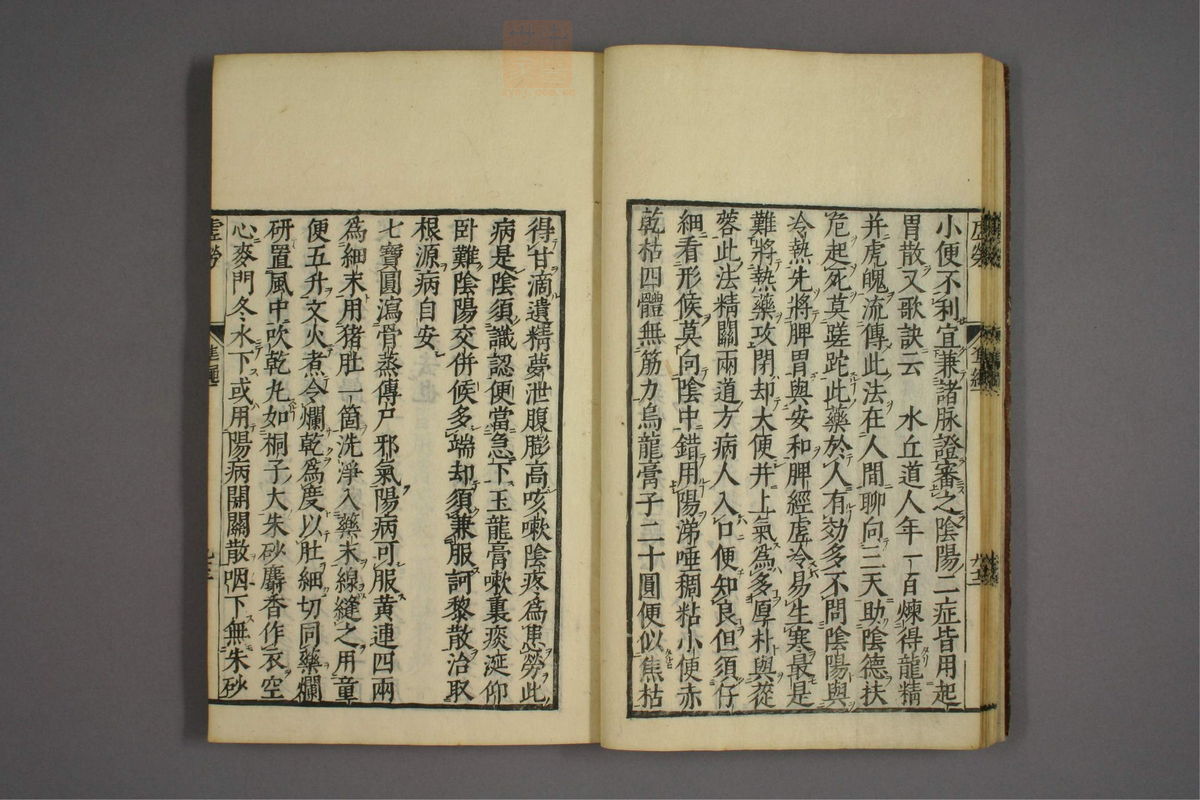 小便不利宜兼諸脉證審之陰陽二症皆用起
胃散又歌訣云　水丘道人年一百煉得龍精
并虎魄流傳此法在人間聊向三天助陰德扶
危起死莫蹉跎此藥於人有効多不問陰陽與
冷熱先將脾胃與安和脾經虛冷易生寒最是
難將熱藥攻閉却大便并上氣為多厚朴與蓯
蓉此法精關兩道方病人入口便知良但須仔
細看形候莫向陰中錯用陽涕唾稠粘小便赤
乾枯四體無筋力烏龍膏子二十圓便似焦枯
得甘滴遺精夢泄腹膨高咳嗽陰疼為患勞此
病是陰須識認便當急下玉龍膏嗽裏痰涎仰
臥難陰陽交併候多端却須兼服訶黎散治取
根源病自安
七寶圓瀉骨蒸傳尸邪氣陽病可服黄連四兩
為細末用猪肚一箇洗淨入藥末線縫之用童
便五升文火煮令爛乾為度以肚細切同藥爛
研置風中吹乾丸如桐子大朱砂麝香作衣空
心麥門冬水下或用陽病開關散咽下無朱砂
虛勞
準繩